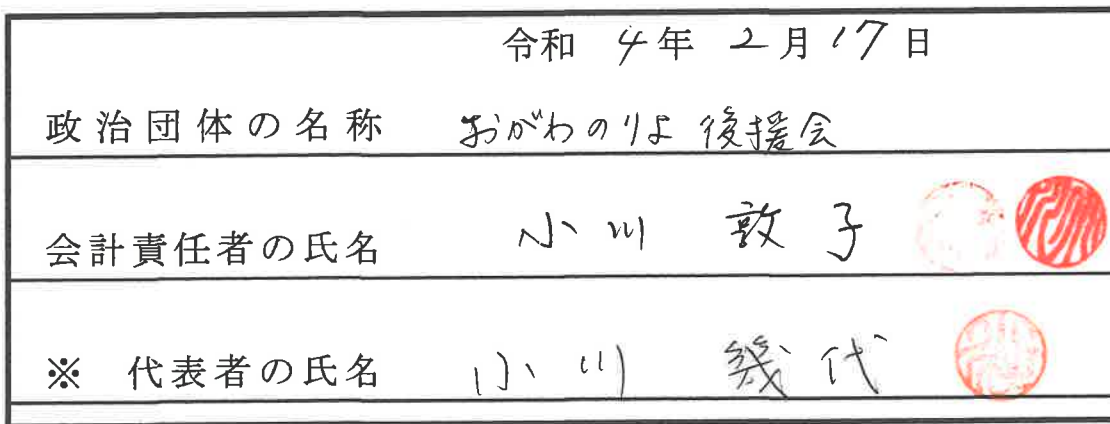 令和 4年 2月17日
政治団体の名称 おがわのりよ後援会
会計責任者の氏名 小川 敦子
※ 代表者の氏名 小川 幾代